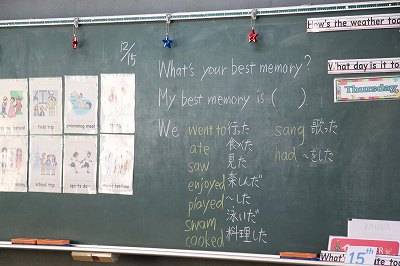 How's the weather to
12/15
What's your best memory?
What day is it to
My best memory is (   ).
Thursday
We went to 行った sang 歌った
ate 食べた had ~をした
saw 見た
enjoyed 楽しんだ
played ~した
swam 泳いだ
cooked 料理した
field trip
swimming meet
school trip
sports day
music festival
What's
15th
ate too